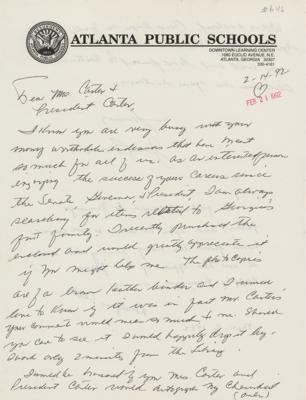 ATLANTA PUBLIC SCHOOLS
DOWNTOWN LEARNING CENTER
1080 EUCLID AVENUE, N.E.
ATLANTA, GEORGIA 30307
330-4161
2-14-92
FEB 21 1992
Dear Mrs Carter &
President Carter,
I know you are very busy with your
many worthwhile endeavors that have meant
so much for all of us. As an interested person
enjoying the success of your careers since
the Senate Governor, & President I am always
searching for items related to Georgia's
first family. I recently purchased the
enclosed and would greatly appreciate it
if you might help me. The photo copies
are of a brown leather binder and I would
love to know if it was in fact Mrs Carter's
Your comment would mean so much to me. Should
you care to see it I would happily drop it by.
I work only 2 minutes from the Library.
I would be honored if you Mrs Carter and
President Carter would autograph my cherished
(over)